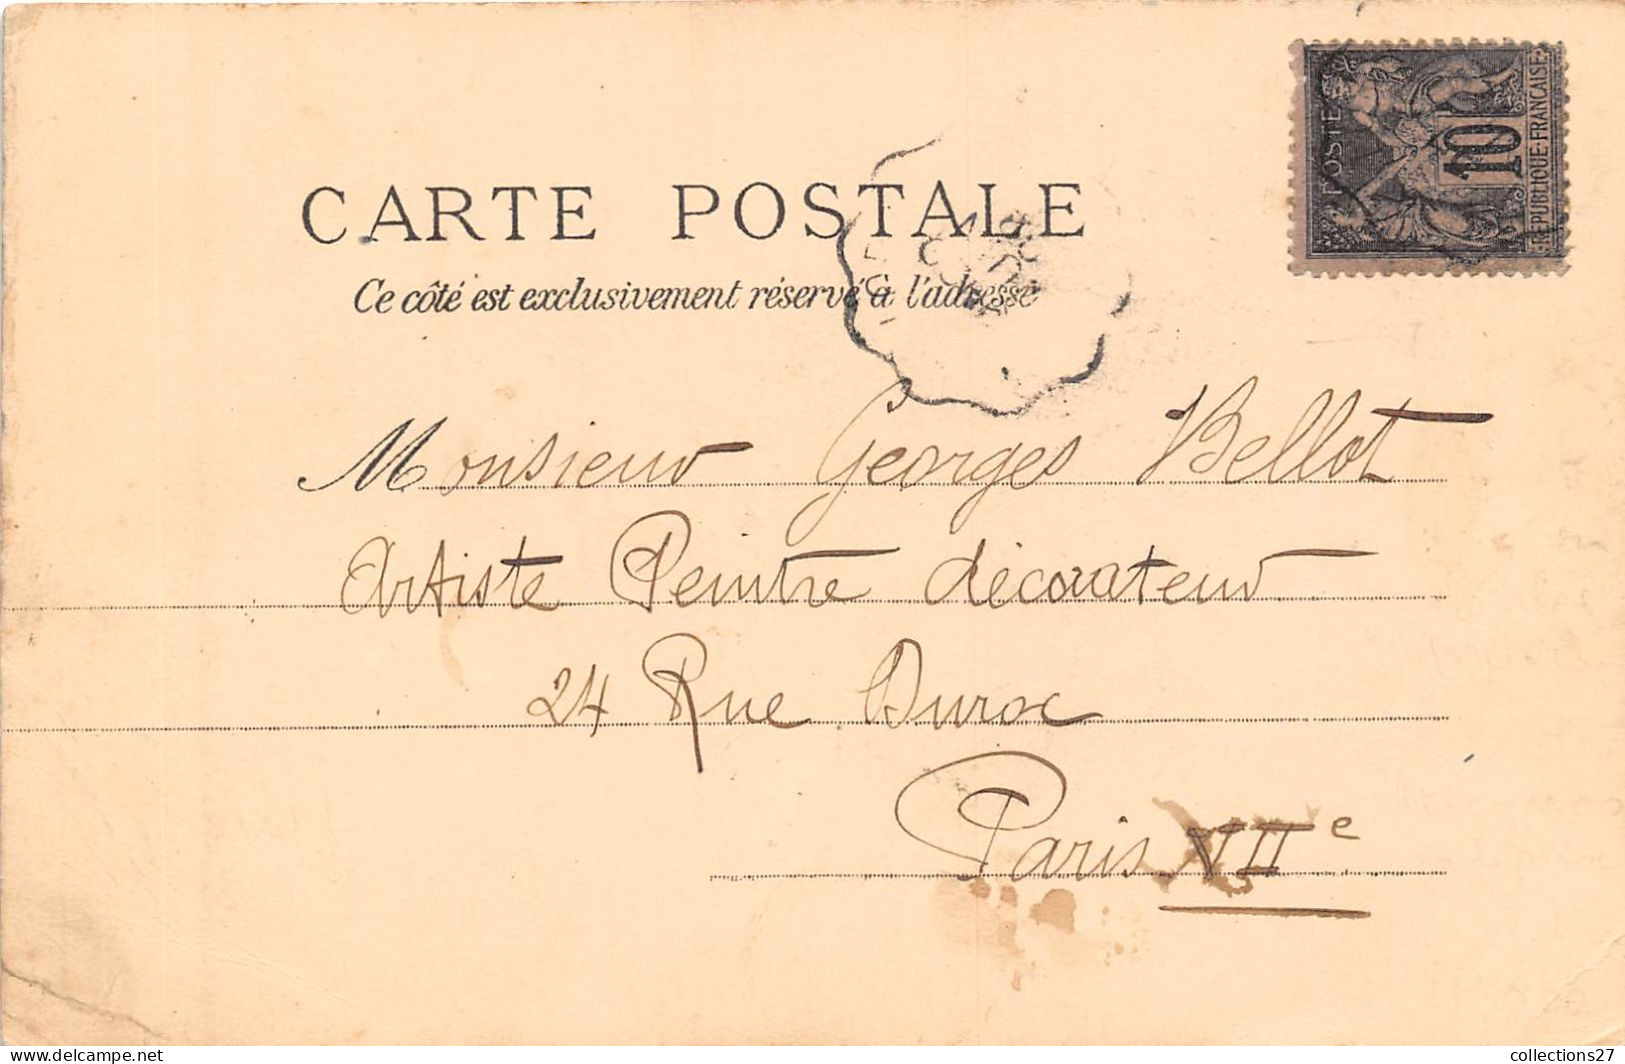 CARTE POSTALE
Ce côté est exclusivement réservé à l'adresse
POSTES
10
REPUBLIQUE FRANCAISE
Monsieur Georges Bellot
Artiste Peintre décorateur
24 Rue Duroc
Paris VIIe
collections27